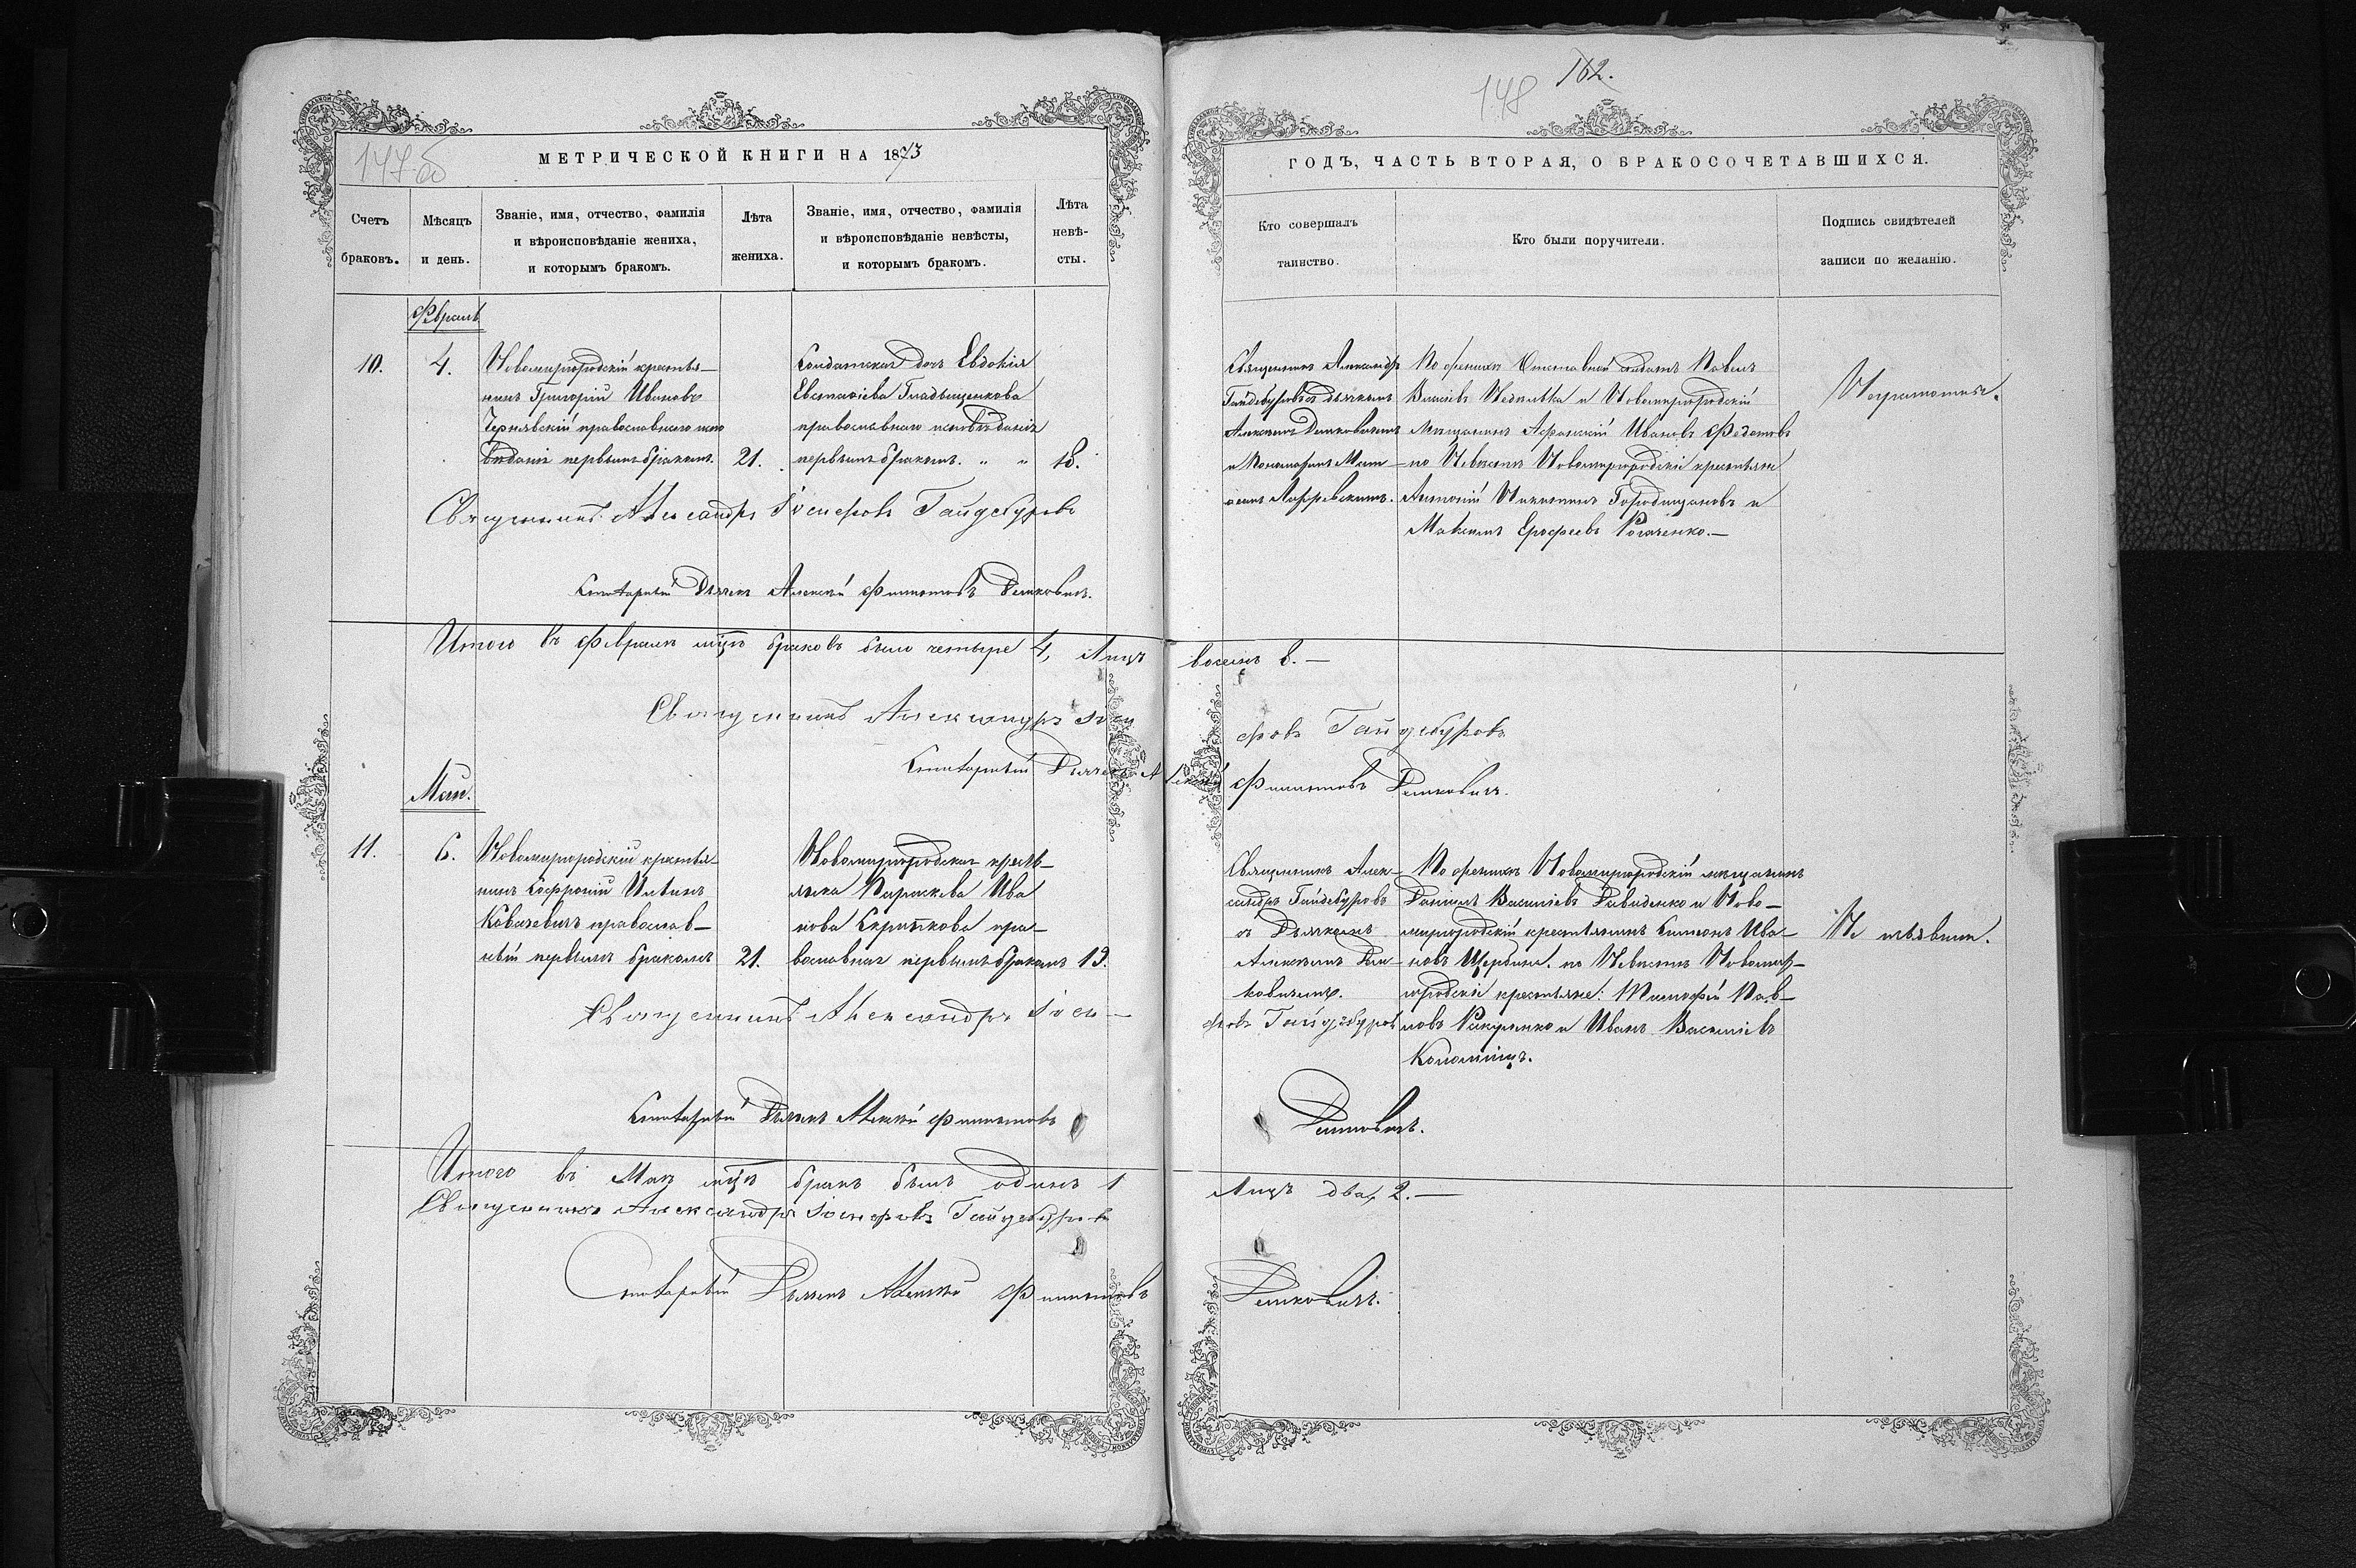 147об
МЕТРИЧЕСКОЙ КНИГИ НА 1873
Счетъ браковъ.
Мѣсяцъ и день.
Званіе, имя, отчество, фамилія
и вѣроисповѣданіе жениха,
и которымъ бракомъ.
Лѣта жениха.
Званіе, имя, отчество, фамилія
и вѣроисповѣданіе невѣсты,
и которымъ бракомъ.
Лѣта невѣ-
сты.
Февраль
10.
4.
Новомиргородскій крестья-
нинъ Григорій Ивановъ
Чернявскій православнаго испо
вѣданія первымъ бракомъ.
21.
Солдатская дочь Евдокія
Евстафіева Гладышенкова
православнаго исповѣданія
первымъ бракомъ. " "
18.
Священникъ Александръ Іосифовъ Гайдебуровъ
Дьячекъ Алексѣй Филиповъ
Итого въ Февралѣ мцѣ браковъ было четыре 4, Лицъ
Священникъ Александръ Іоси
Дьячекъ Алексѣй
Май.
11.
6.
Новомиргородскій крестья-
нинъ Софроній
Ковачевичъ православ-
ный первымъ бракомъ
21.
Новомиргородская кресть-
янка Параскева Ива
нова Скрипкова пра-
вославная первымъ бракомъ
19.
Священникъ Александръ Іоси-
Дьячекъ Алексѣй Филиповъ
Итого въ Маѣ мцѣ бракъ былъ одинъ 1
Священникъ Александръ Іосифовъ Гайдебуровъ
Дьячекъ Алексѣй Филиповъ
148
162.
ГОДЪ, ЧАСТЬ ВТОРАЯ, О БРАКОСОЧЕТАВШИХСЯ.
Кто совершалъ
таинство.
Кто были поручители.
Подпись свидѣтелей
записи по желанію.
Священникъ Александръ
Гайдебуровъ съ дьячкомъ
Алексѣемъ
и Пономаремъ
По женихѣ Отставной солдатъ Павелъ
Василіевъ и Новомиргородскій
мѣщанинъ Афанасій Ивановъ Федотовъ
по Невѣстѣ Новомиргородскіе крестьяне
Антоній Никитинъ Городищановъ и
Максимъ Ерофеевъ
Неграмотные.
восемь 8.—
фовъ Гайдебуровъ
Филиповъ
Священникъ Алек-
сандръ Гайдебуровъ
съ Дьячкомъ
Алексѣемъ
фовъ Гайдебуровъ
По женихѣ Новомиргородскій мѣщанинъ
Даніилъ Василіевъ Давиденко и Ново-
миргородскій крестьянинъ Симеонъ Ива-
новъ Щербина. по Невѣстѣ Новомир-
городскіе крестьяне: Тимофей Пав-
ловъ и Иванъ Василіевъ
Коломіецъ.
Не изъявили.
Лицъ два, 2.—